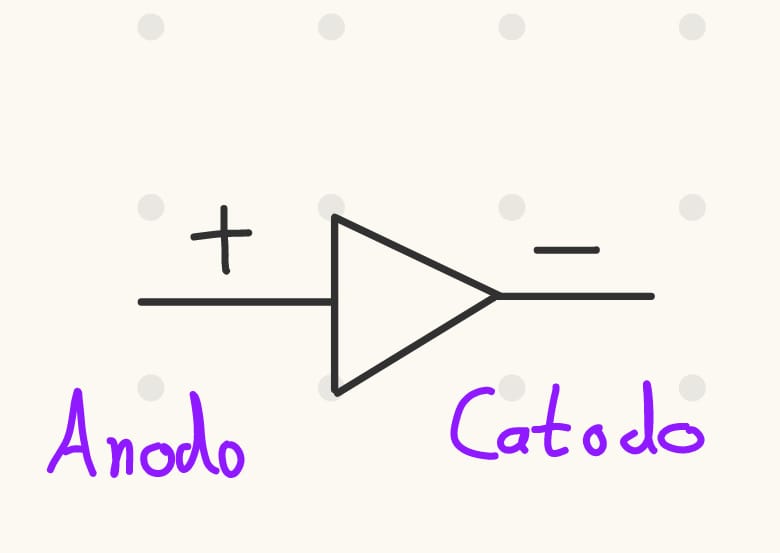 + −
Anodo Catodo